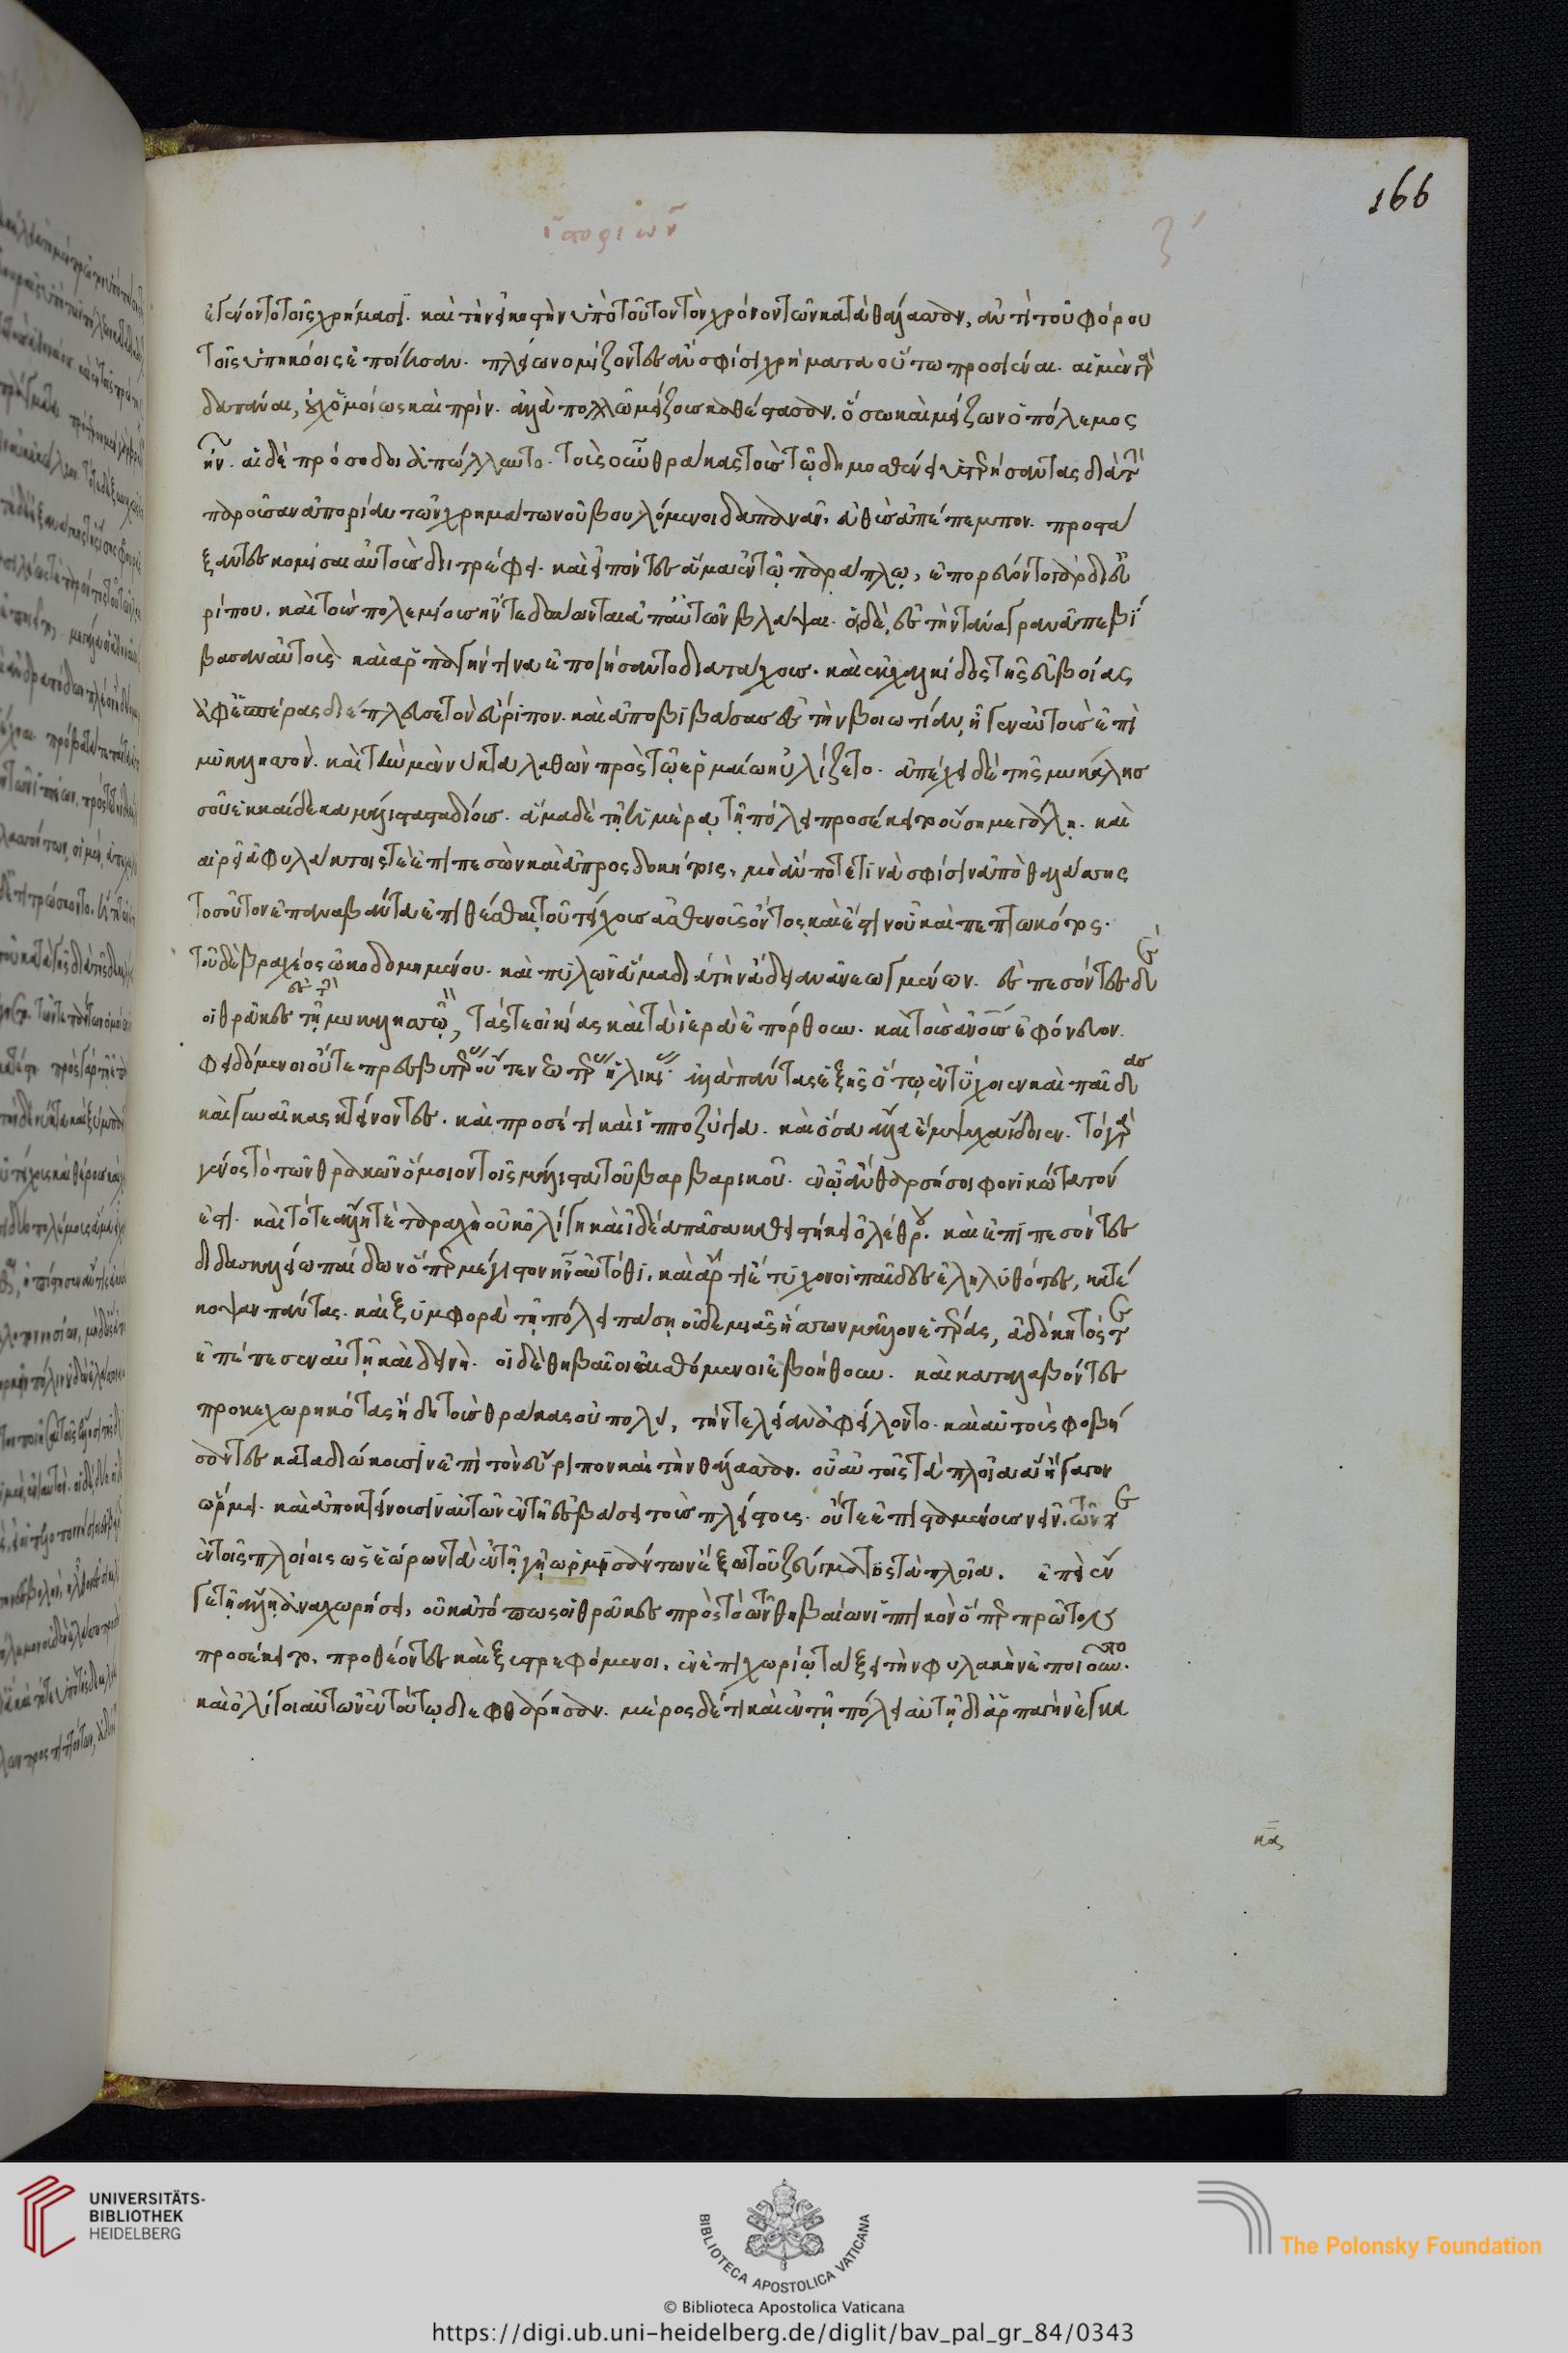 ἱστοριῶν ζʹ
166
ἐγένοντο τοῖς χρήμασι. καὶ τὴν εἰκοστὴν ὑπὸ τοῦτον τὸν χρόνον τῶν κατὰ θάλασσαν, ἀντὶ τοῦ φόρου
τοῖς ὑπηκόοις ἐποίησαν. πλείω νομίζοντες ἂν σφίσι χρήματα οὕτω προσιέναι. αἱ μὲν γὰρ
δαπάναι, οὐχ ὁμοίως καὶ πρίν. ἀλλὰ πολλῶ μείζους καθέστασαν. ὅσω καὶ μείζων ὁ πόλεμος
ἦν. αἱ δὲ πρόσοδοι ἀπώλλυντο. τοὺς οὖν θρᾶκας τοὺς τῷ δημοσθένει ὑστερήσαντας διὰ τὴν
παροῦσαν ἀπορίαν τῶν χρημάτων οὐ βουλόμενοι δαπανᾶν, εὐθὺς ἀπέπεμπον. προστά
ξαντες κομίσαι αὐτοὺς διιτρέφει. καὶ εἰπόντες ἅμα ἐν τῷ παράπλῳ, ἐπορεύοντο γὰρ δι' εὐ
ρίπου. καὶ τοὺς πολεμίους ἤν τε δύνωνται ἀπ' αὐτῶν βλάψαι. ὁ δὲ, ἐς τὴν τάναγραν ἀπεβί
βασεν αὐτοὺς καὶ ἁρπαγήν τινα ἐποιήσαντο διὰ τάχους. καὶ ἐκ χαλκίδος τῆς εὐβοίας
ἀφ' ἑσπέρας διέπλευσε τὸν εὔριπον. καὶ ἀποβιβάσας ἐς τὴν βοιωτίαν, ἦγεν αὐτοὺς ἐπὶ
μυκαλησσόν. καὶ τὴν μὲν νύκτα λαθὼν πρὸς τῷ ἑρμαίω ηὐλίζετο. ἀπέχει δὲ τῆς μυκαλησ
σοῦ ἑκκαίδεκα μάλιστα σταδίους. ἅμα δὲ τῇ ἡμέρᾳ τῇ πόλει προσέκειτο οὔσῃ μεγάλῃ. καὶ
αἱρεῖ ἀφυλάκτοις τὲ ἐπιπεσὼν καὶ ἀπροσδοκήτοις, μὴ ἄν ποτέ τινὰ σφίσιν ἀπὸ θαλάσσης
τοσοῦτον ἐπαναβάντα ἐπιθέσθαι, τοῦ τείχους ἀσθενοῦς ὄντος καὶ ἔστιν οὗ καὶ πεπτωκότος.
τοῦ δὲ βραχέος ὠκοδομημένου. καὶ πυλῶν ἅμα διὰ τὴν ἄδειαν ἀνεωγμένων. ἐσπεσόντες δὲ
οἱ θρᾶκες ἐς τὴν μυκαλησσὸν, τάς τε οἰκίας καὶ τὰ ἱερὰ ἐπόρθουν. καὶ τοὺς ἀνους ἐφόνευον.
φειδόμενοι οὔτε πρεσβυτέρους οὔτε νεωτέρους ἡλικίας. ἀλλὰ πάντας ἑξῆς ὅτῳ ἐντύχοιεν καὶ παῖδας
καὶ γυναῖκας κτείνοντες. καὶ προσέτι καὶ ὑποζύγια. καὶ ὅσα ἄλλα ἔμψυχα ἴδοιεν. τὸ γὰρ
γένος τὸ τῶν θρακῶν ὅμοιον τοῖς μάλιστα τοῦ βαρβαρικοῦ. ἐν ᾧ ἂν θαρσήσῃ φονικώτατόν
ἐστι. καὶ τότε ἄλλη τὲ ταραχὴ οὐκ ὀλίγη καὶ ἰδέα πᾶσα καθειστήκει ὀλέθρου. καὶ ἐπιπεσόντες
διδασκαλείω παίδων ὅπερ μέγιστον ἦν αὐτόθι, καὶ ἄρτι ἔτυχον οἱ παῖδες ἐσεληλυθότες, κατέ
κοψαν πάντας. καὶ ξυμφορὰ τῇ πόλει πάσῃ οὐδεμιᾶς ἥσσων μᾶλλον ἑτέρας, ἀδόκητός τε
ἐπέπεσεν αὐτῇ καὶ δεινή. οἱ δὲ θηβαῖοι αἰσθόμενοι ἐβοήθουν. καὶ καταλαβόντες
προκεχωρηκότας ἤδη τοὺς θρᾶκας οὐ πολὺ, τήν τε λείαν ἀφείλοντο. καὶ αὐτοὺς φοβή
σαντες καταδιώκουσιν ἐπὶ τὸν εὔριπον καὶ τὴν θάλασσαν. οὗ αὐτοῖς τὰ πλοῖα ἃ ἤγαγον
ὥρμει. καὶ ἀποκτείνουσιν αὐτῶν ἐν τῇ ἐσβάσει τοὺς πλείστους. οὔτε ἐπισταμένους νεῖν. τῶν τε
ἐν τοῖς πλοίοις ὡς ἑώρων τὰ ἐν τῇ γῇ ὁρμισάντων ἔξω τοῦ ζεύγματος τὰ πλοῖα. ἐπεὶ ἔν
γε τῇ ἄλλῃ ἀναχωρήσει, οὐκ ἀτόπως οἱ θρᾶκες πρὸς τὸ τῶν θηβαίων ἱππικὸν ὅπερ πρῶτον
προσέκειτο, προθέοντες καὶ ξυστρεφόμενοι. ἐν ἐπιχωρίῳ τάξει τὴν φυλακὴν ἐποιοῦντο.
καὶ ὀλίγοι αὐτῶν ἐν τούτῳ διεφθάρησαν. μέρος δέ τι καὶ ἐν τῇ πόλει αὐτῇ δι' ἁρπαγὴν ἐγκα
UNIVERSITÄTS-
BIBLIOTHEK
HEIDELBERG
BIBLIOTECA APOSTOLICA VATICANA
The Polonsky Foundation
© Biblioteca Apostolica Vaticana
https://digi.ub.uni-heidelberg.de/diglit/bav_pal_gr_84/0343